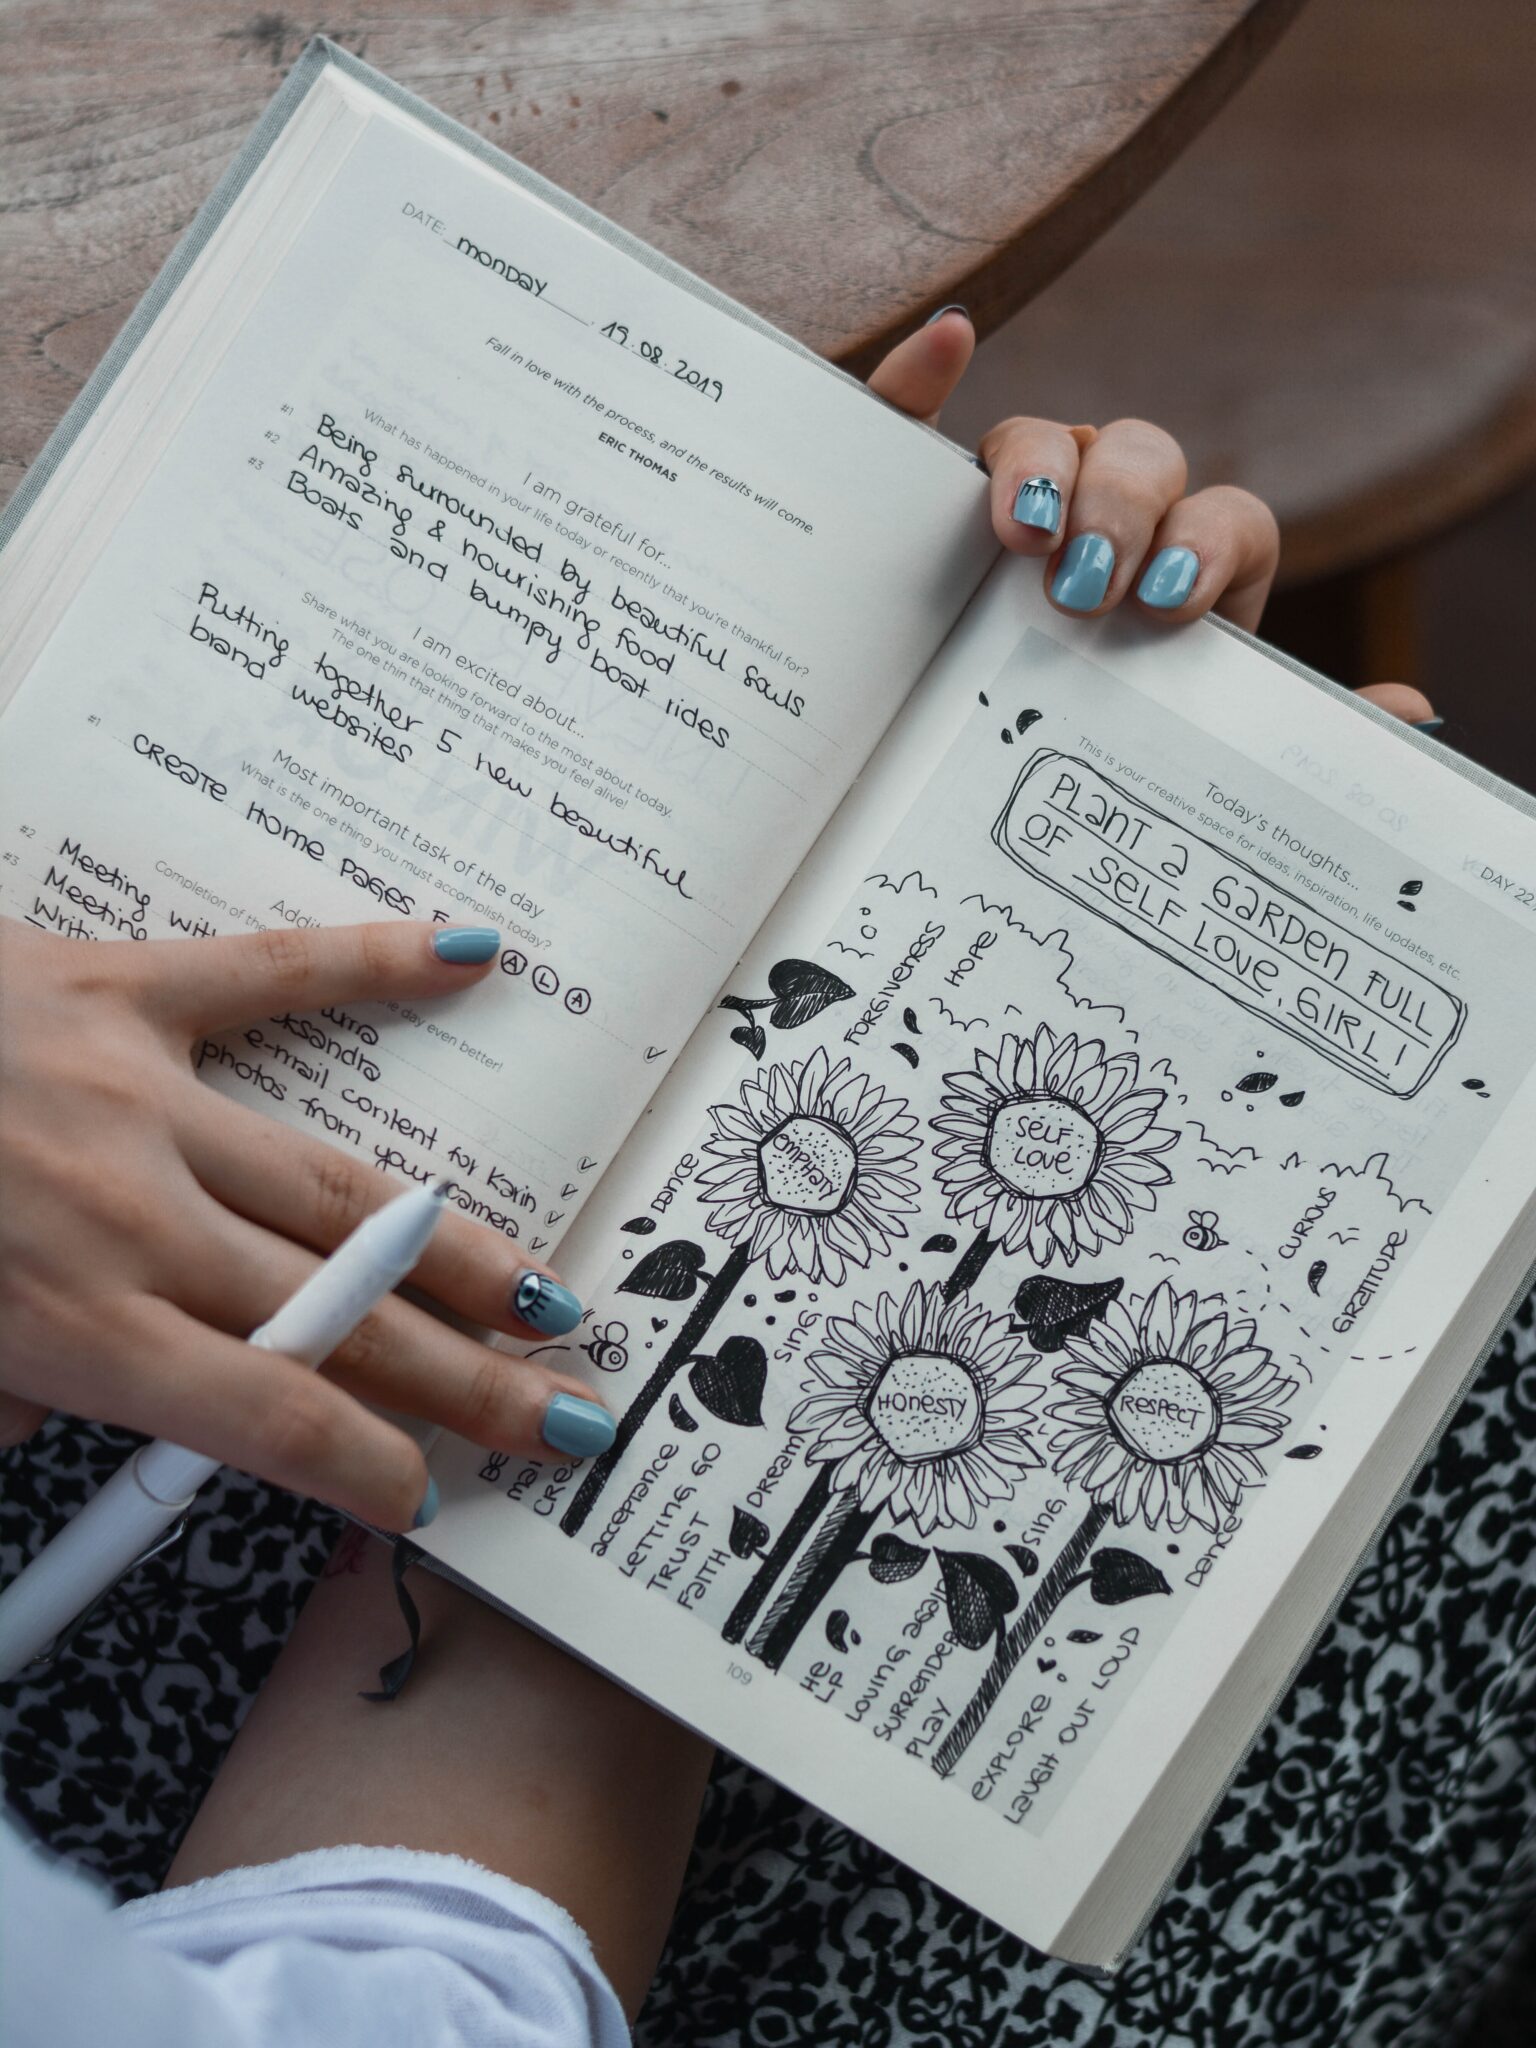 DATE: monDay, 19.08.2019
Fall in love with the process, and the results will come.
ERIC THOMAS
I am grateful for...
What has happened in your life today or recently that you're thankful for?
#1 Being surrounded by beautiful souls
#2 Amazing & nourishing food
#3 Boats and bumpy boat rides
I am excited about...
Share what you are looking forward to the most about today.
The one thin that thing that makes you feel alive!
Putting together 5 new beautiful
brand websites
Most important task of the day
What is the one thing you must accomplish today?
#1 CREATE HOME PAGES
A L A
Addit
Completion of the
the day even better!
#2 Meeting with
#3 Meeting
e-mail content for Karin
photos from your camera
DAY 22
Today's thoughts...
This is your creative space for ideas, inspiration, life updates, etc.
PLANT a GARDEN FULL
OF SELF LOVE, GIRL!
FORGIVENESS
HOPE
EMPHATY
SELF
LOVE
DANCE
CURIOUS
GRATITUDE
SING
HONESTY
RESPECT
acceptance
LETTING GO
TRUST
FAITH
DREAM
SING
Dance
HE
LP
LOVING again
SURRENDER
PLAY
EXPLORE
LAUGH OUT LOUD
109